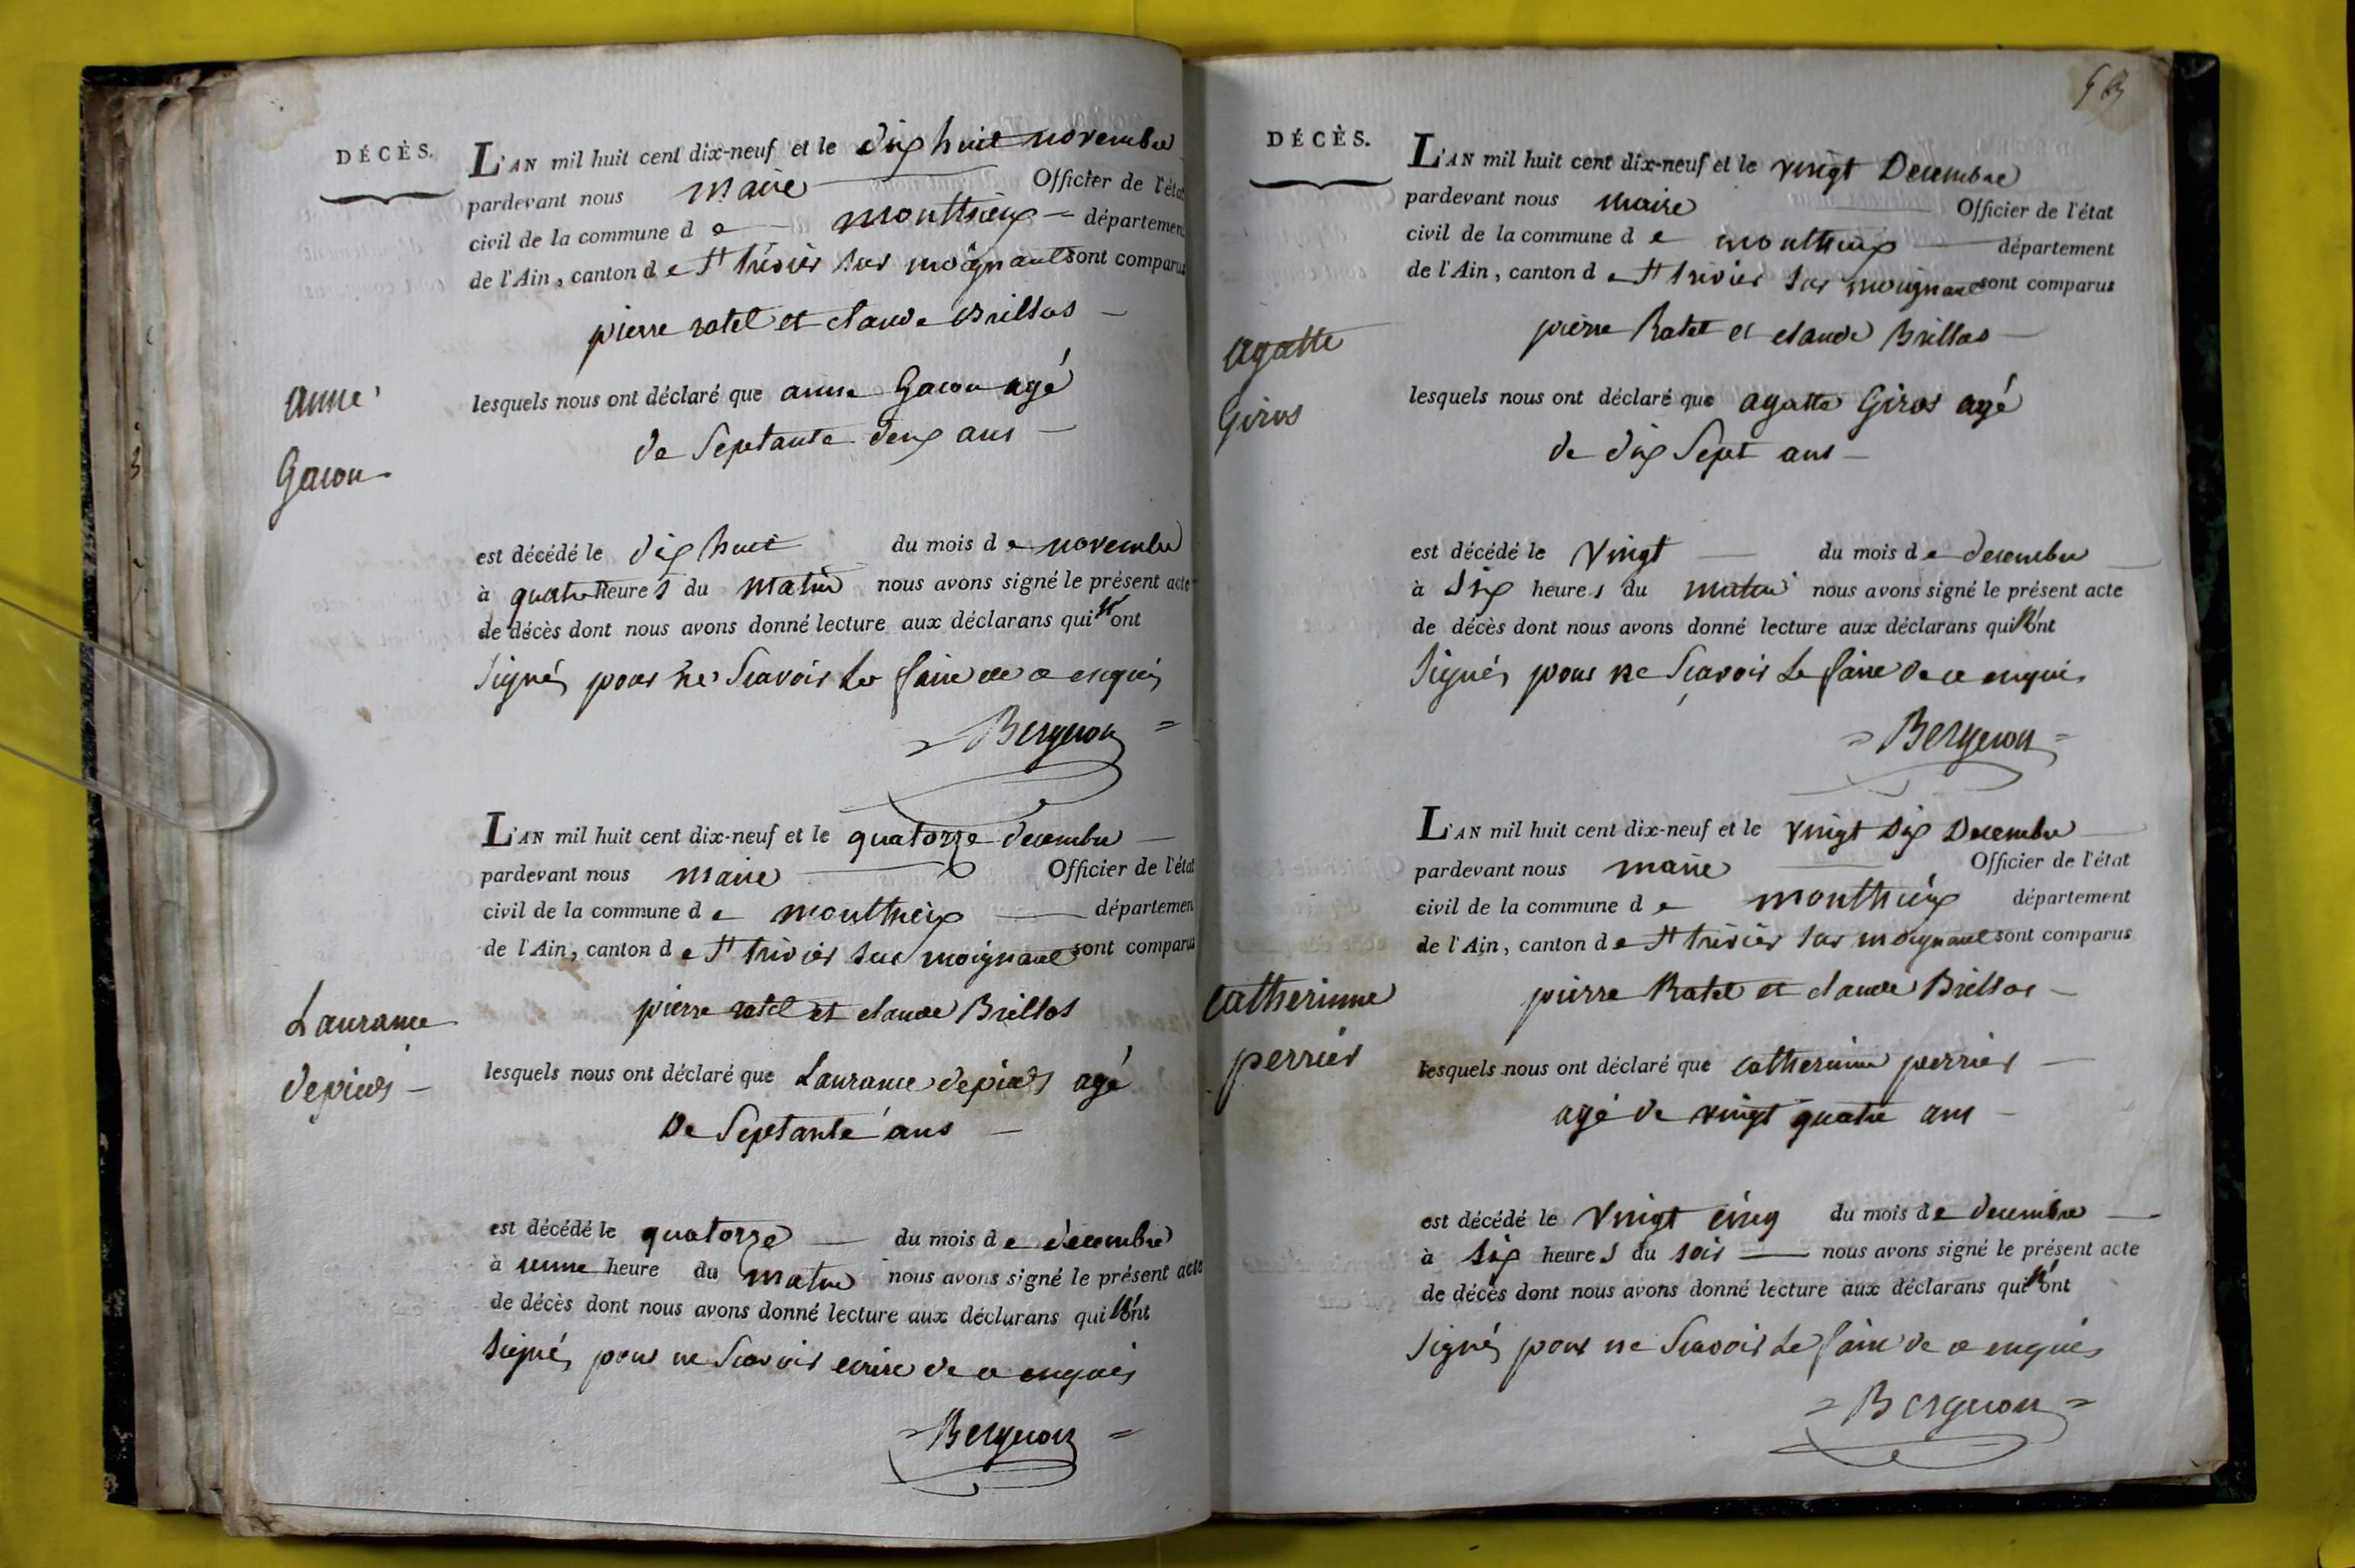 DÉCÈS.
L'AN mil huit cent dix-neuf et le dix huit novembre
pardevant nous maire Officier de l'état
civil de la commune d e monthieux département
de l'Ain, canton d e St trivier sur moignant sont comparus
pierre ratel et claude Brillas
anne
Gacon
lesquels nous ont déclaré que anne Gacon agé
de Septante deux ans
est décédé le dix huit du mois d e novembre
à quatre heures du matin nous avons signé le présent acte
de décès dont nous avons donné lecture aux déclarans qui n'ont
signés pour ne Scavoir le faire de ce enquis
Bergeron
L'AN mil huit cent dix-neuf et le quatorze decembre
pardevant nous maire Officier de l'état
civil de la commune d e monthieux département
de l'Ain, canton d e St trivier sur moignant sont comparus
pierre ratel et claude Brillas
Laurance
depierds
lesquels nous ont déclaré que Laurance agé
De Septante ans
est décédé le quatorze du mois d e decembre
à unne heure du matin nous avons signé le présent acte
de décès dont nous avons donné lecture aux déclarans qui n'ont
signés pour ne Scavoir ecrire de ce enquis
Bergeron
DÉCÈS.
L'AN mil huit cent dix-neuf et le vingt Decembre
pardevant nous maire Officier de l'état
civil de la commune d e monthieux département
de l'Ain, canton d e St trivier sur moignant sont comparus
pierre Ratel et claude Brillas
agatte
Giros
lesquels nous ont déclaré que agatte Giros agé
de dix Sept ans
est décédé le vingt du mois d e decembre
à Six heures du matin nous avons signé le présent acte
de décès dont nous avons donné lecture aux déclarans qui n'ont
signés pour ne Scavoir le faire de ce enquis
Bergeron
L'AN mil huit cent dix-neuf et le vingt Six Decembre
pardevant nous maire Officier de l'état
civil de la commune d e monthieux département
de l'Ain, canton d e St trivier sur moignant sont comparus
pierre Ratel et claude Brillas
Catherinne
perrier
lesquels nous ont déclaré que Catherinne perrier
agé de vingt quatre ans
est décédé le vingt cinq du mois d e decembre
à six heures du soir nous avons signé le présent acte
de décès dont nous avons donné lecture aux déclarans qui n'ont
signés pour ne Scavoir le faire de ce enquis
Bergeron